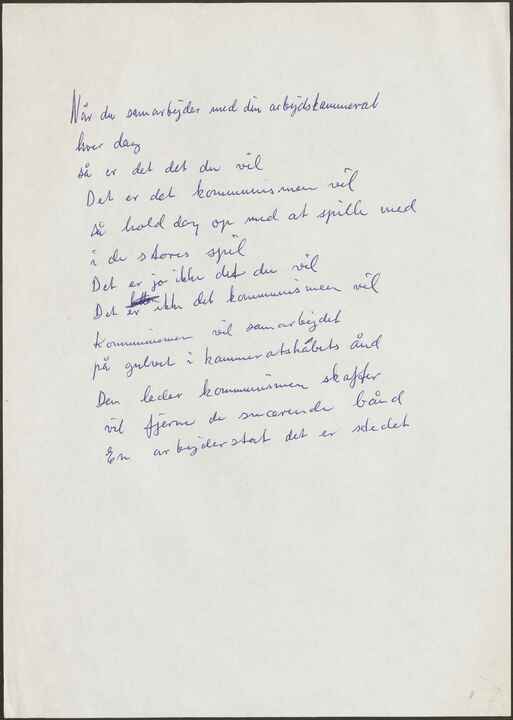 Når du samarbejder med din arbejdskammerat
hver dag
så er det det du vil
Det er det kommunismen vil
så hold dog op med at spille med
i de stores spil
Det er jo ikke det du vil
Det er ikke det kommunismen vil
Kommunismen vil samarbejdet
på gulvet i kammeratskabets ånd
Den leder kommunismen skaffer
vil fjerne de snærende bånd
En arbejderstat det er stedet